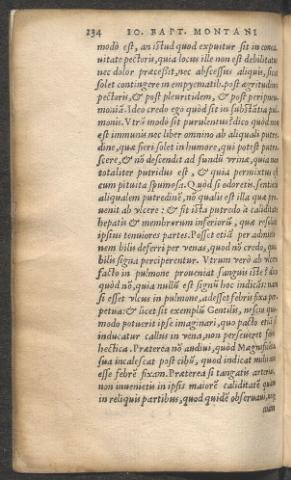 234 IO. BAPT. MONTANI
modò est, an istud quod expuitur sit in conca
uitate pectoris, quia locus ille non est debilitatus
nec dolor præcessit, nec abscessus aliquis, sicut
solet contingere in empyematib. post ægritudines
pectoris, & post pluritidem, & post peripneu
moniã. Ideo credo ego quòd sit in substãtia pul
monis. Vtrũ modò sit purulentus? dico quòd non
est immunis nec liber omnino ab aliquali putre
dine, quæ fieri solet in humore, qui potest putre
scere, & nõ descendit ad fundũ vrinæ, quia non
totaliter putridus est, & quia permixtus est
cum pituita spumosa. Quòd si odoretis, sentietis
aliqualem putredinẽ, nō qualis est illa quæ pro
uenit ab vlcere: & fit ista putredo à caliditate
hepatis & membrorum inferiorũ, quæ resoluit
ipsius tenuiores partes. Posset etiã per admistio
nem bilis deferri per venas, quod nõ credo, quia
bilis signa perciperentur. Vtrum verò ab vlcere
facto in pulmone proueniat sanguis iste? dico
quòd nõ, quia nullũ est signũ hoc indicãs: nam
si esset vlcus in pulmone, adesset febris fixa per
petua: & licet sit exemplũ Gentilis, nescio quo
modo potuerit ipse imaginari, quo pacto etiã si
inducatur callus in vena, non perseueret febris
hectica. Præterea nõ audiui, quòd Magnificẽtia
sua incalescat post cibũ, quod indicat nullã in eo
esse febrẽ fixam. Præterea si tangatis arterias,
non inuenietis in ipsis maiorẽ caliditatẽ quàm
in reliquis partibus, quod quidẽ obseruaui,